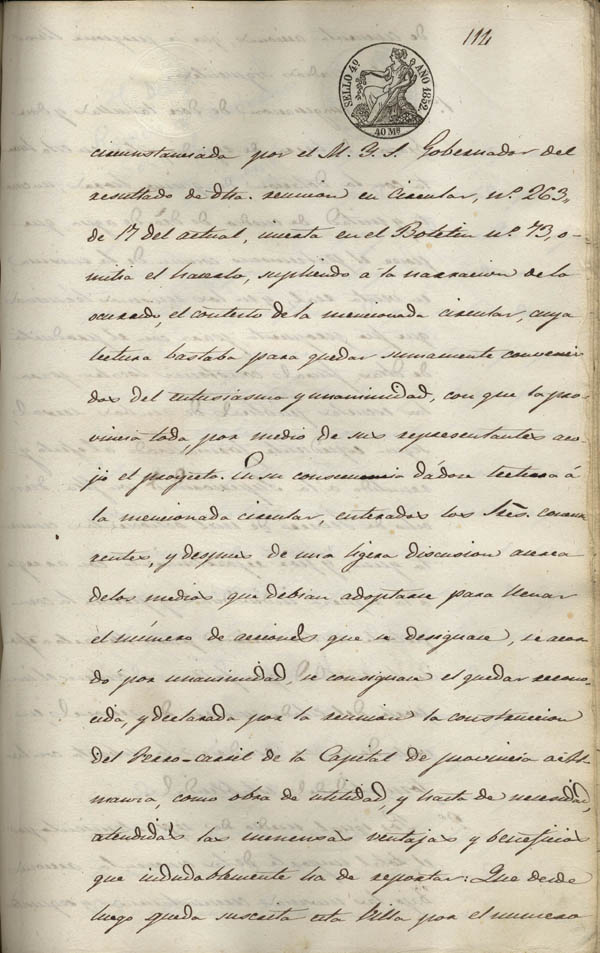 114
SELLO 4º AÑO 1852.
40 Ms
circunstanciada por el M. Y. S. Gobernador del
resultado de dha. reunion en circular, nº. 263,,
de 17 del actual, inserta en el Boletin nº. 73, o-
mitia el hacerlo, supliendo a la narracion de lo
ocurrido, el contesto de la mencionada circular, cuya
lectura bastaba para quedar sumamente convenci
dos del entusiasmo y unanimidad, con que la pro-
vincia toda, por medio de sus representantes aco-
jio el proyecto. En su consecuencia dádose lectura á
la mencionada circular, enterados los Sres. concur
rentes, y despues de una ligera discusion acerca
delos medios que debian adoptarse para llenar
el número de acciones que se designase, se acor
dó por unanimidad, se consignase el quedar recono
cida, y declarada por la reunion la construccion
del Ferro-carril de la Capital de provincia a Al-
mansa, como obra de utilidad, y hasta de necesidad,
atendidas las inmensas ventajas y beneficios
que indudablemente ha de reportar: Que desde
luego queda suscrita esta Villa por el numero